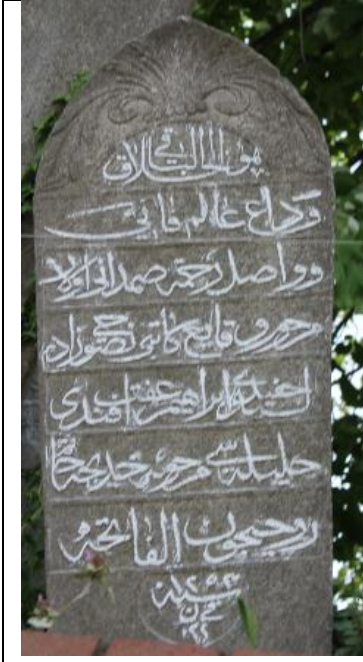 هو الخلاق الباقي
وداع عالم فاني
و واصل رحمة صمداني اولان
مرحوم وقايع كاتبى زاده
ابراهيم عفت افندى
حليله سى مرحومه خديجه خانم
روحيچون الفاتحه
سنه